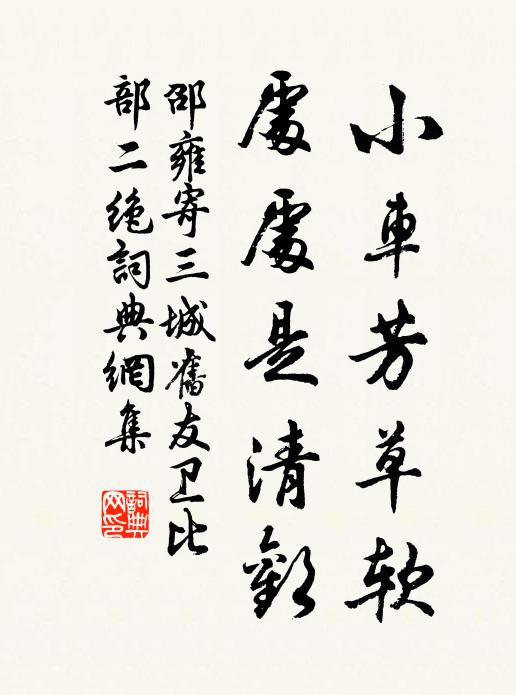 小車芳草軟
處處是清歡
邵雍寄三城舊友卫比
部二絶詞典網集
詞典
网印